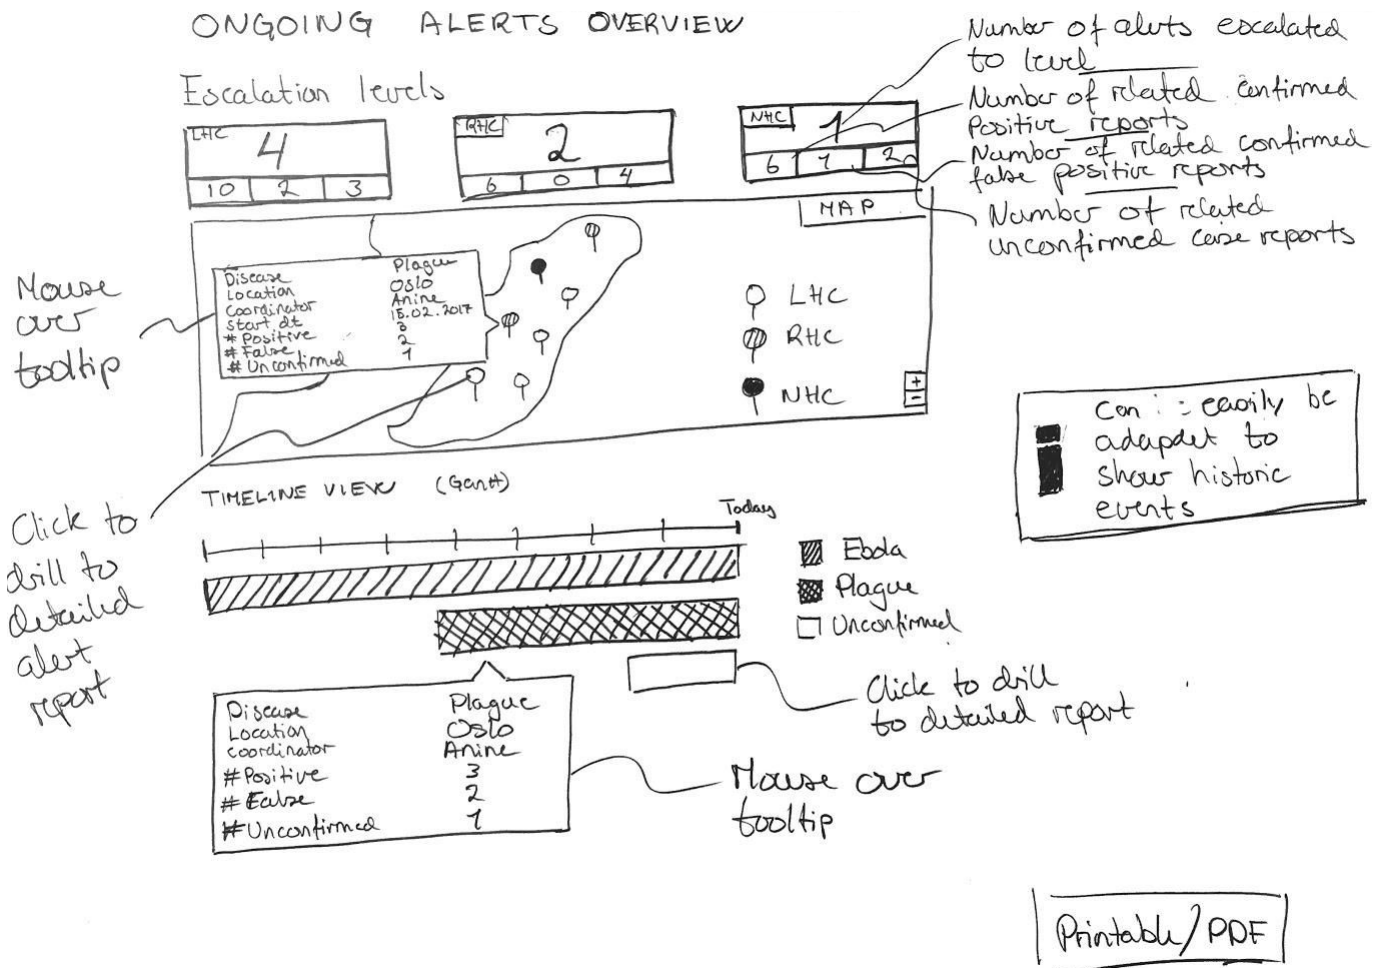 ONGOING ALERTS OVERVIEW
Escalation levels
LHC
4
10 2 3
RHC
2
6 0 4
NHC
1
6 1 2
Number of alerts escalated
to level
Number of related confirmed
Positive reports
Number of related confirmed
false positive reports
Number of related
unconfirmed case reports
MAP
Disease Plague
Location Oslo
Coordinator Anine
start dt 15.02.2017
# Positive 3
# False 2
# Unconfirmed 1
LHC
RHC
NHC
+
-
Mouse
over
tooltip
Click to
drill to
detailed
alert
report
can easily be
adapdet to
show historic
events
TIMELINE VIEW (Gantt)
Today
Ebola
Plague
Unconfirmed
Click to drill
to detailed report
Disease Plague
Location Oslo
Coordinator Anine
# Positive 3
# False 2
# Unconfirmed 1
Mouse over
tooltip
Printable/PDF